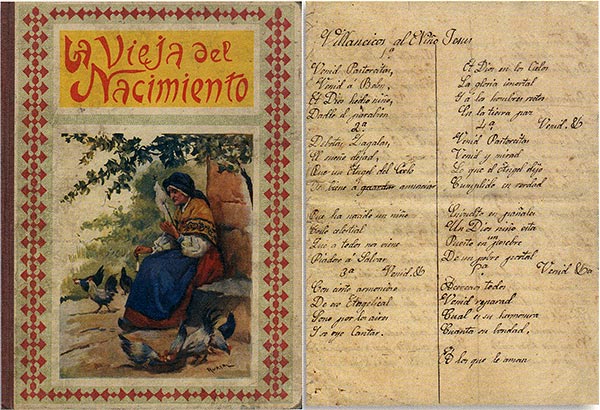 La Vieja del
Nacimiento
Villancicos al Niño Jesus
Venid Pastorcitos,
Venid a Belen,
El Dios hecho niño,
Dadle el parabien
2ª
Zagalas,
El sueño dejad,
Que un Angel del Cielo
Os viene a guardar anunciar
Que ha nacido un niño
celestial
Que a todos no viene
Piadoso a Salvar.
3ª Venid.&
Con ecito armonioso
De voz Evangelical
por los aires
I se oye Cantar.
El Dios en los Cielos
La gloria inmortal
I a los hombres
En la tierra paz
4ª Venid.&
Venid Pastorcitos
Venid y mirad
Lo que el Angel dijo
Cumplido en verdad
Enbuelto en pañales
Un Dios niño esta
Puesto en un pesebre
De un pobre portal
Venid &a
todos
Venid
Cual es su hermosura
Cuanta su bondad,
A los que le aman